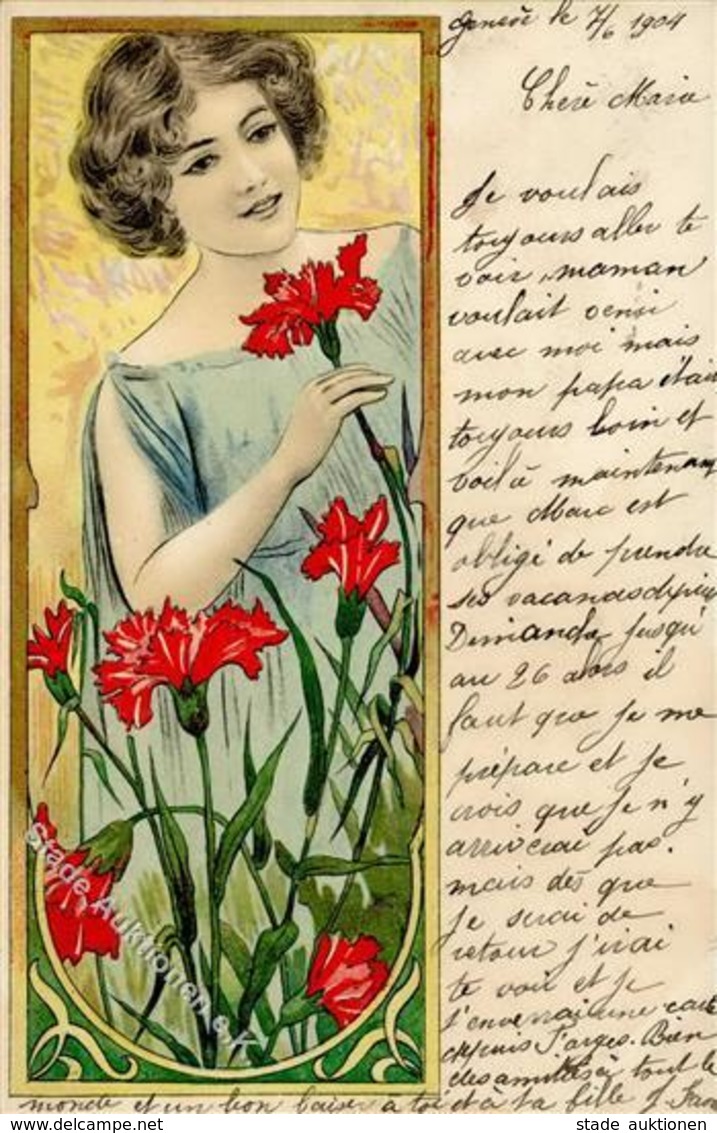 Genève le 7/6 1904
Chère Marie
Je voulais
toujours aller te
voir, maman
voulait venir
avec moi mais
mon papa était
toujours loin et
voilà maintenant
que Marc est
obligé de prendre
ses vacances depuis
Dimanche jusqu'
au 26 alors il
faut que je me
prépare et je
crois que je n'y
arriverai pas.
mais dès que
je serai de
retour j'irai
te voir et je
t'enverrai une carte
depuis Bien
des amitiés à tout le
monde et un bon baiser à toi et à ta fille J.
Stade Auktionen e.K.
stade auktionen